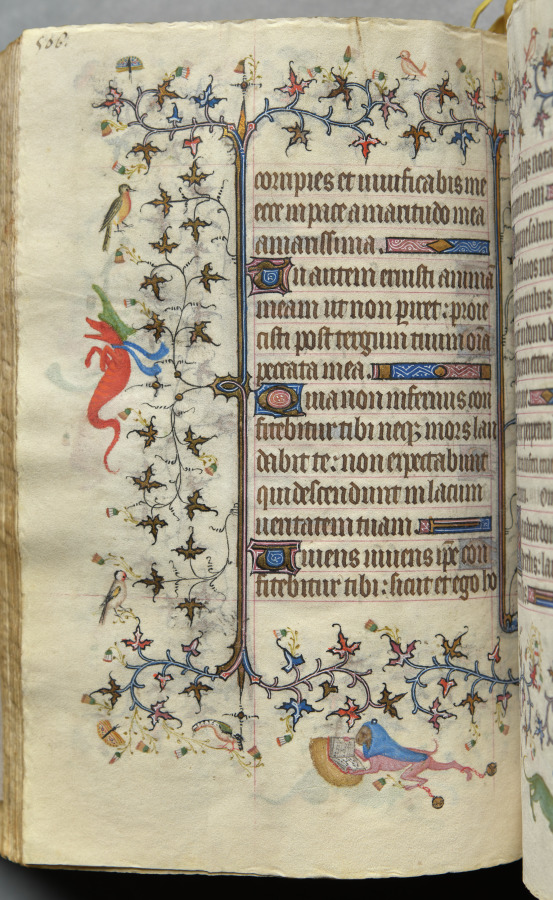 506.
corripies et uiuificabis me
ecce in pace amaritudo mea
amarissima.
Tu autem eruisti animā
meam ut non piret: proie
cisti post tergum tuum oīa
peccata mea.
Quia non infernus con
fitebitur tibi neq; mors lau
dabit te: non expectabunt
qui descendunt in lacum
ueritatem tuam
Uiuens uiuens ip̄e con
fitebitur tibi: sicut et ego ho